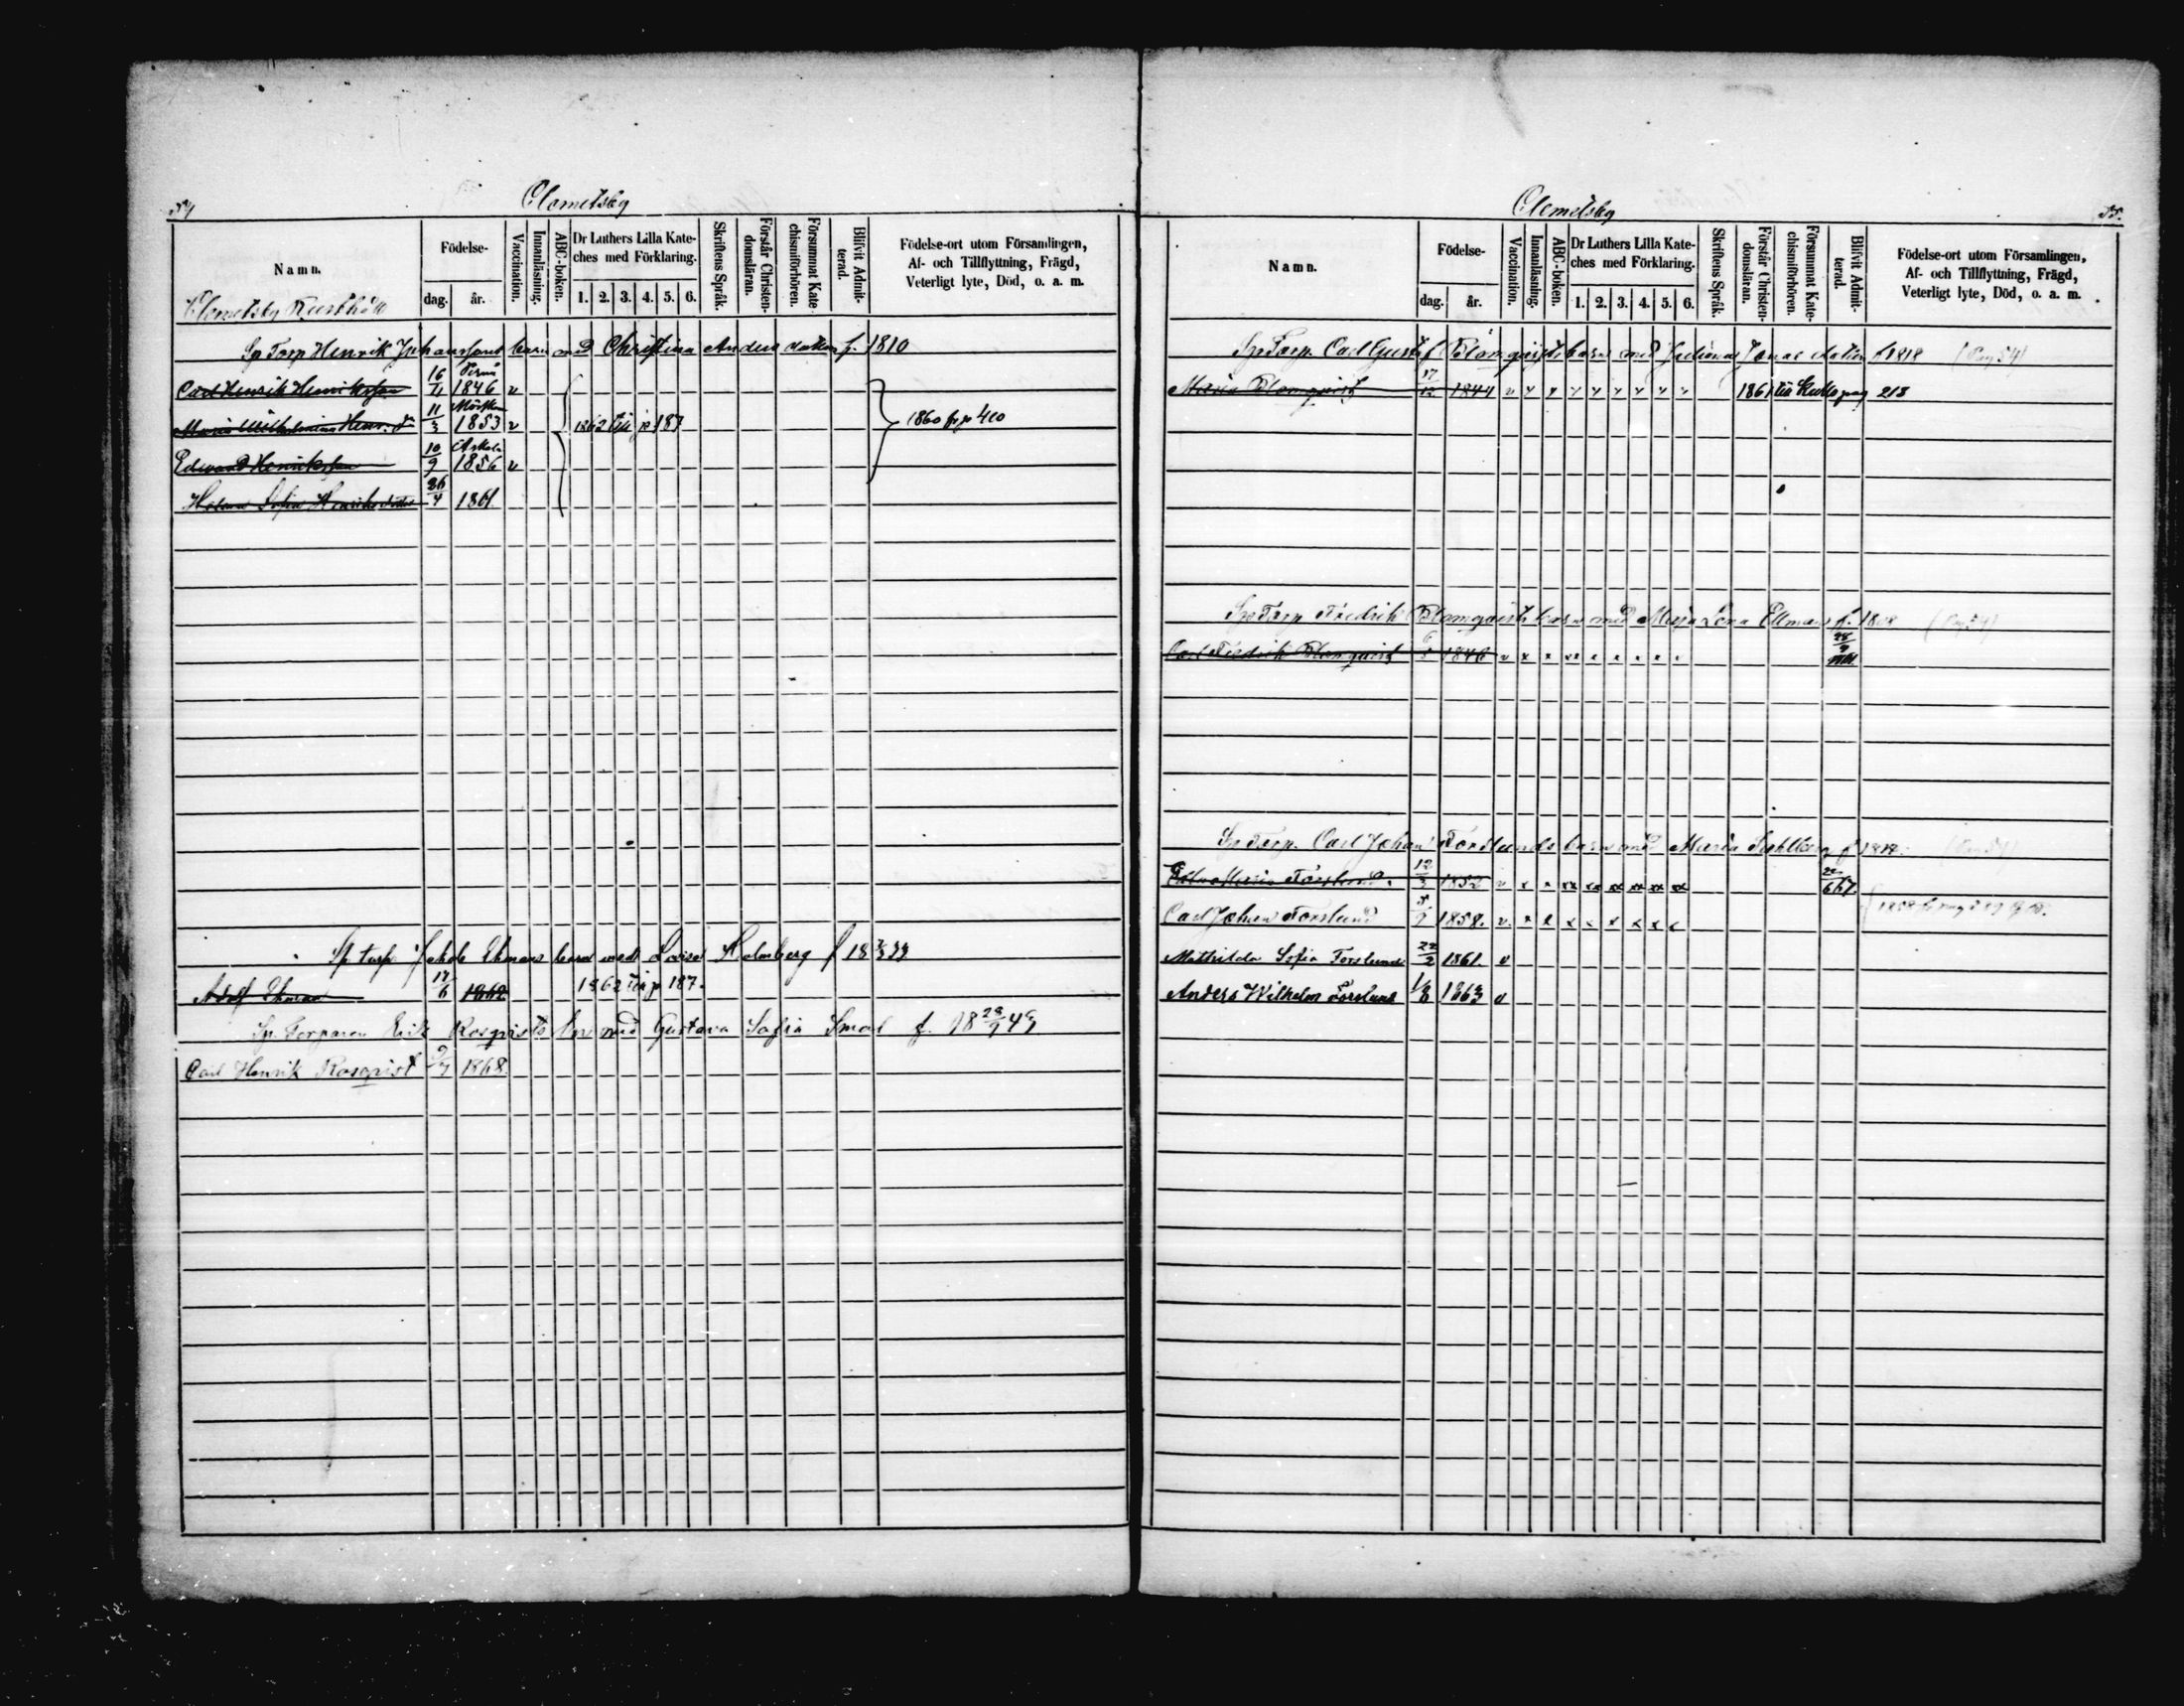 54
Clemetsby
Namn.
Födelse-
dag.
år.
Vaccination.
Innanläsning.
ABC-boken.
Dr Luthers Lilla Kate-
ches med Förklaring.
1. 2. 3. 4. 5. 6.
Skriftens Språk.
Förstår Christen-
domsläran.
Försummat Kate-
chismiförhören.
Blifvit Admit-
terad.
Födelse-ort utom Församlingen,
Af- och Tillflyttning, Frägd,
Veterligt lyte, Död, o. a. m.
Clemetsby Rusthåll
Sp Torp Henrik Johanssons barn med Christina Andersdotter f. 1810
Carl Henrik Henriksson 16/4 Perno 1846 v
Maria Wilhelmina Henr. dr 11/3 1853 v 1862 till p 187 1860 fr p 400
Edvard Henriksson 10/9 Askola 1856 v
Helena Sofia Henriksdotter 26/4 1861.
Sp torp Ekmans barn med Lovisa Holmberg f 18 33
Adolf Ekman 17/6 1862 1862 till p 187.
Sp. Torparen Erik Rosqvists br med Gustava Sofia Smal f. 18 23/9 49
Carl Henrik Rosqvist 1868.
Clemetsby
55.
Namn.
Födelse-
dag.
år.
Vaccination.
Innanläsning.
ABC-boken.
Dr Luthers Lilla Kate-
ches med Förklaring.
1. 2. 3. 4. 5. 6.
Skriftens Språk.
Förstår Christen-
domsläran.
Försummat Kate-
chismiförhören.
Blifvit Admit-
terad.
Födelse-ort utom Församlingen,
Af- och Tillflyttning, Frägd,
Veterligt lyte, Död, o. a. m.
Sp Torp. Carl Gustaf Blomqvists barn med Juliana Jonasdotter f 1818 (Pag 54)
Maria Blomqvist 17/12 1844 v x x x x x x x x 1861 till Kullo pag 213
Sp Torp Fredrik Blomqvists barn med Maja Lena Ellman f. 1808 (Pag 54)
Carl Fredrik Blomqvist 1846 v x x xx x x x x x 28/9
Sp Torp. Carl Johan Forslunds barn med Maria f 1818. (Pag 54)
Maria Forslund. 12/3 1852 v x x xx xx xx xx xx xx 667.
Carl Johan Forslund 1858. v. x x x x x x x x
Mathilda Sofia Forslund 22/2 1861. v
Anders Wilhelm Forslund 1/8 1863 v